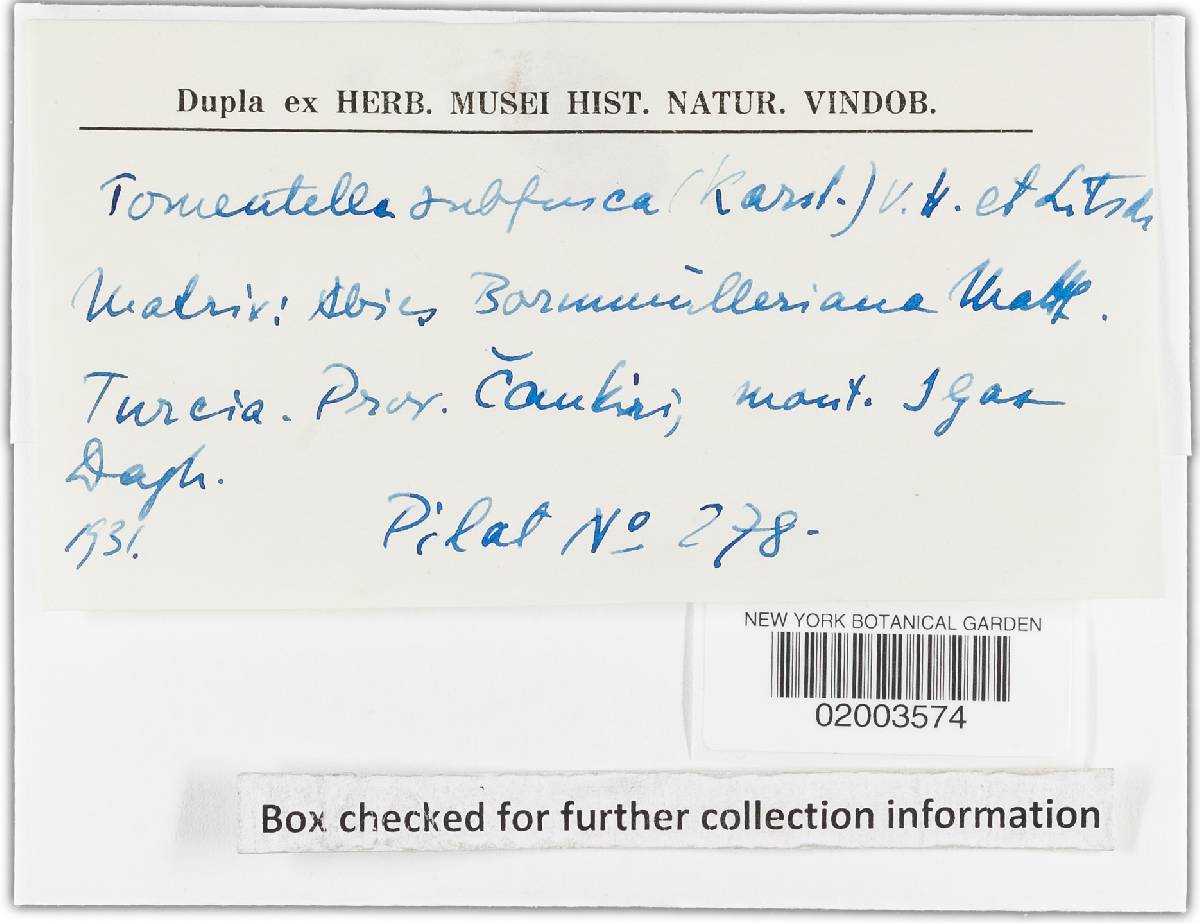 Dupla ex HERB. MUSEI HIST. NATUR. VINDOB.
Tomentella subfusca (Karst.) v. H. et Litsch
Matrix: Abies Bornmülleriana Mattf.
Turcia. Prov. Čankiri, mont. Ilgas
Dagh.
1931.
Pilat No 278-
NEW YORK BOTANICAL GARDEN
02003574
Box checked for further collection information